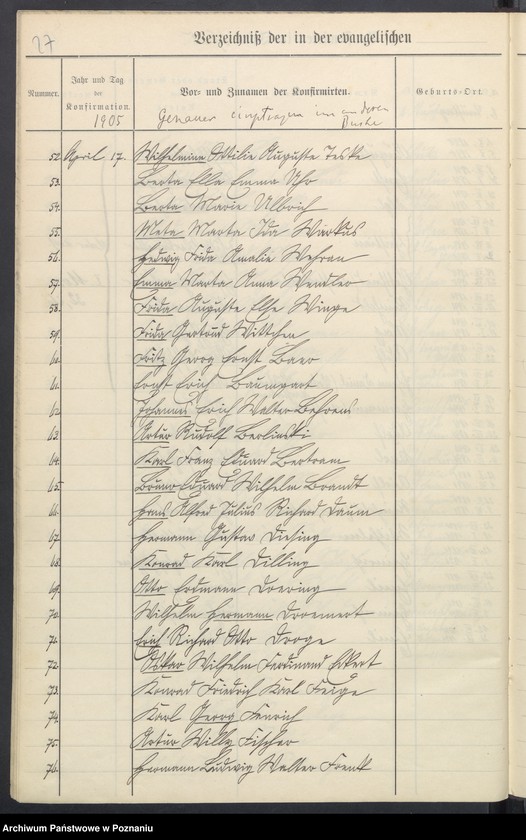 27
Verzeichniß der in der evangelischen
Nummer.
Jahr und Tag
der
Konfirmation.
1905
Vor- und Zunamen der Konfirmirten.
Geburts-Ort.
Genauer im anderen
52. April 17. Wilhelmine Ottilie Auguste Teske
53. Berta Ella Emma Uhr
54. Berta Marie Ulbrich
55. Meta Marta Ida Warkus
56. Hedwig Frida Amalie Wehran
57. Emma Marta Anna Wendler
58. Frida Auguste Else Winge
59. Frida Gertrud Wittchen
60. Fritz Georg Ernst Baer
61. Ernst Erich Baumgart
62. Johannes Erich Walter Behrens
63. Artur Rudolf Berlinski
64. Karl Franz Eduard Bertram
65. Bruno Eduard Wilhelm Brandt
66. Hans Alfred Julius Richard Daum
67. Hermann Gustav Diesing
68. Konrad Karl Dilling
69. Otto Erdmann Doering
70. Wilhelm Hermann
71. Erich Richard Otto Droge
72. Oskar Wilhelm Ferdinand Eckert
73. Konrad Friedrich Karl Feige
74. Karl Georg Fenrich
75. Artur Willy Fischer
76. Hermann Ludwig Walter Frenk
Archiwum Państwowe w Poznaniu